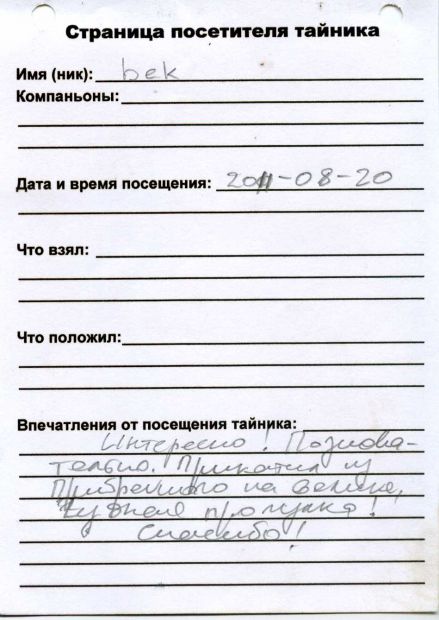 Страница посетителя тайника
Имя (ник): bek
Компаньоны:
Дата и время посещения: 2011-08-20
Что взял:
Что положил:
Впечатления от посещения тайника:
Интересно! Познова-
тельно. Прикатил из
Прибрежного на велике,
чудная прогулка!
Спасибо!